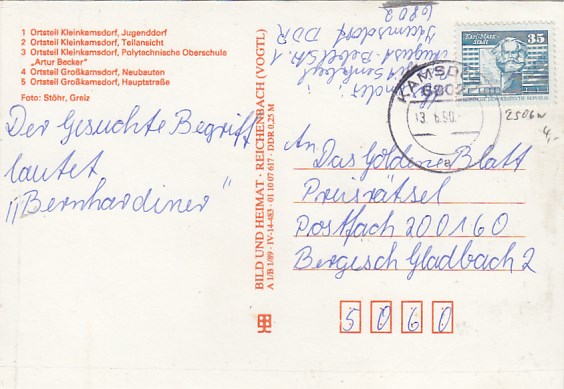 1 Ortsteil Kleinkamsdorf, Jugenddorf
2 Ortsteil Kleinkamsdorf, Teilansicht
3 Ortsteil Kleinkamsdorf, Polytechnische Oberschule
„Artur Becker"
4 Ortsteil Großkamsdorf, Neubauten
5 Ortsteil Großkamsdorf, Hauptstraße
Foto: Stöhr, Greiz
Der Gesuchte Begriff
lautet
„Bernhardiner"
BILD UND HEIMAT · REICHENBACH (VOGTL)
A 1/B 1/89 · IV-14-483 · 01 10 07 617 · DDR 0,25 M
August Bebel Str. 1
Kamsdorf DDR
6802
KARL-MARX-
STADT
35
KAMSDORF
6802
a
2506w
4,-
An
Das Goldene Blatt
Preisrätsel
Postfach 200160
Bergisch Gladbach 2
5060